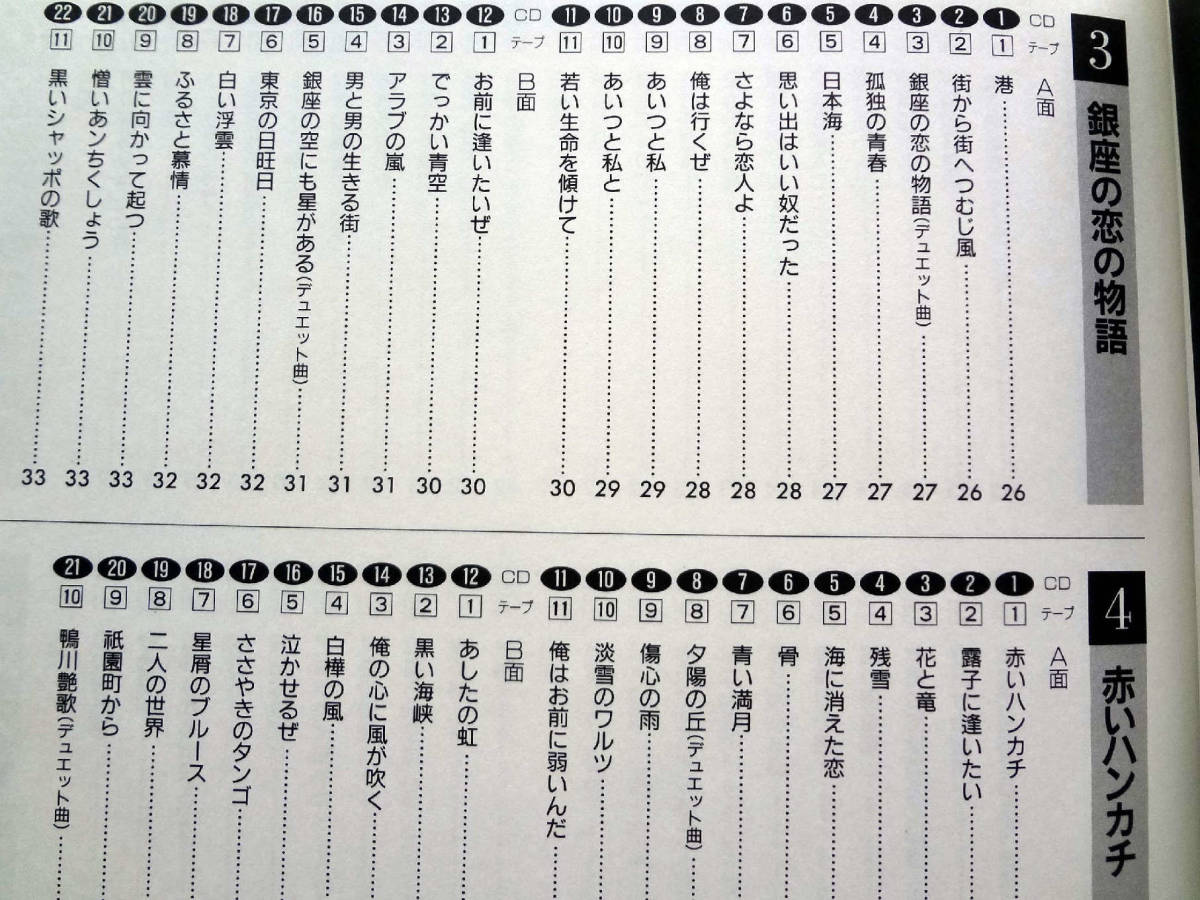 3 銀座の恋の物語
CD テープ A面
1 1 港 26
2 2 街から街へつむじ風 26
3 3 銀座の恋の物語(デュエット曲) 27
4 4 孤独の青春 27
5 5 日本海 27
6 6 思い出はいい奴だった 28
7 7 さよなら恋人よ 28
8 8 俺は行くぜ 28
9 9 あいつと私 29
10 10 あいつと私と 29
11 11 若い生命を傾けて 30
CD テープ B面
12 1 お前に逢いたいぜ 30
13 2 でっかい青空 30
14 3 アラブの嵐 31
15 4 男と男の生きる街 31
16 5 銀座の空にも星がある(デュエット曲) 31
17 6 東京の日旺日 32
18 7 白い浮雲 32
19 8 ふるさと慕情 32
20 9 雲に向かって起つ 33
21 10 憎いあンちくしょう 33
22 11 黒いシャッポの歌 33
4 赤いハンカチ
CD テープ A面
1 1 赤いハンカチ
2 2 露子に逢いたい
3 3 花と竜
4 4 残雪
5 5 海に消えた恋
6 6 骨
7 7 青い満月
8 8 夕陽の丘(デュエット曲)
9 9 傷心の雨
10 10 淡雪のワルツ
11 11 俺はお前に弱いんだ
CD テープ B面
12 1 あしたの虹
13 2 黒い海峡
14 3 俺の心に風が吹く
15 4 白樺の風
16 5 泣かせるぜ
17 6 ささやきのタンゴ
18 7 星屑のブルース
19 8 二人の世界
20 9 祇園町から
21 10 鴨川艶歌(デュエット曲)